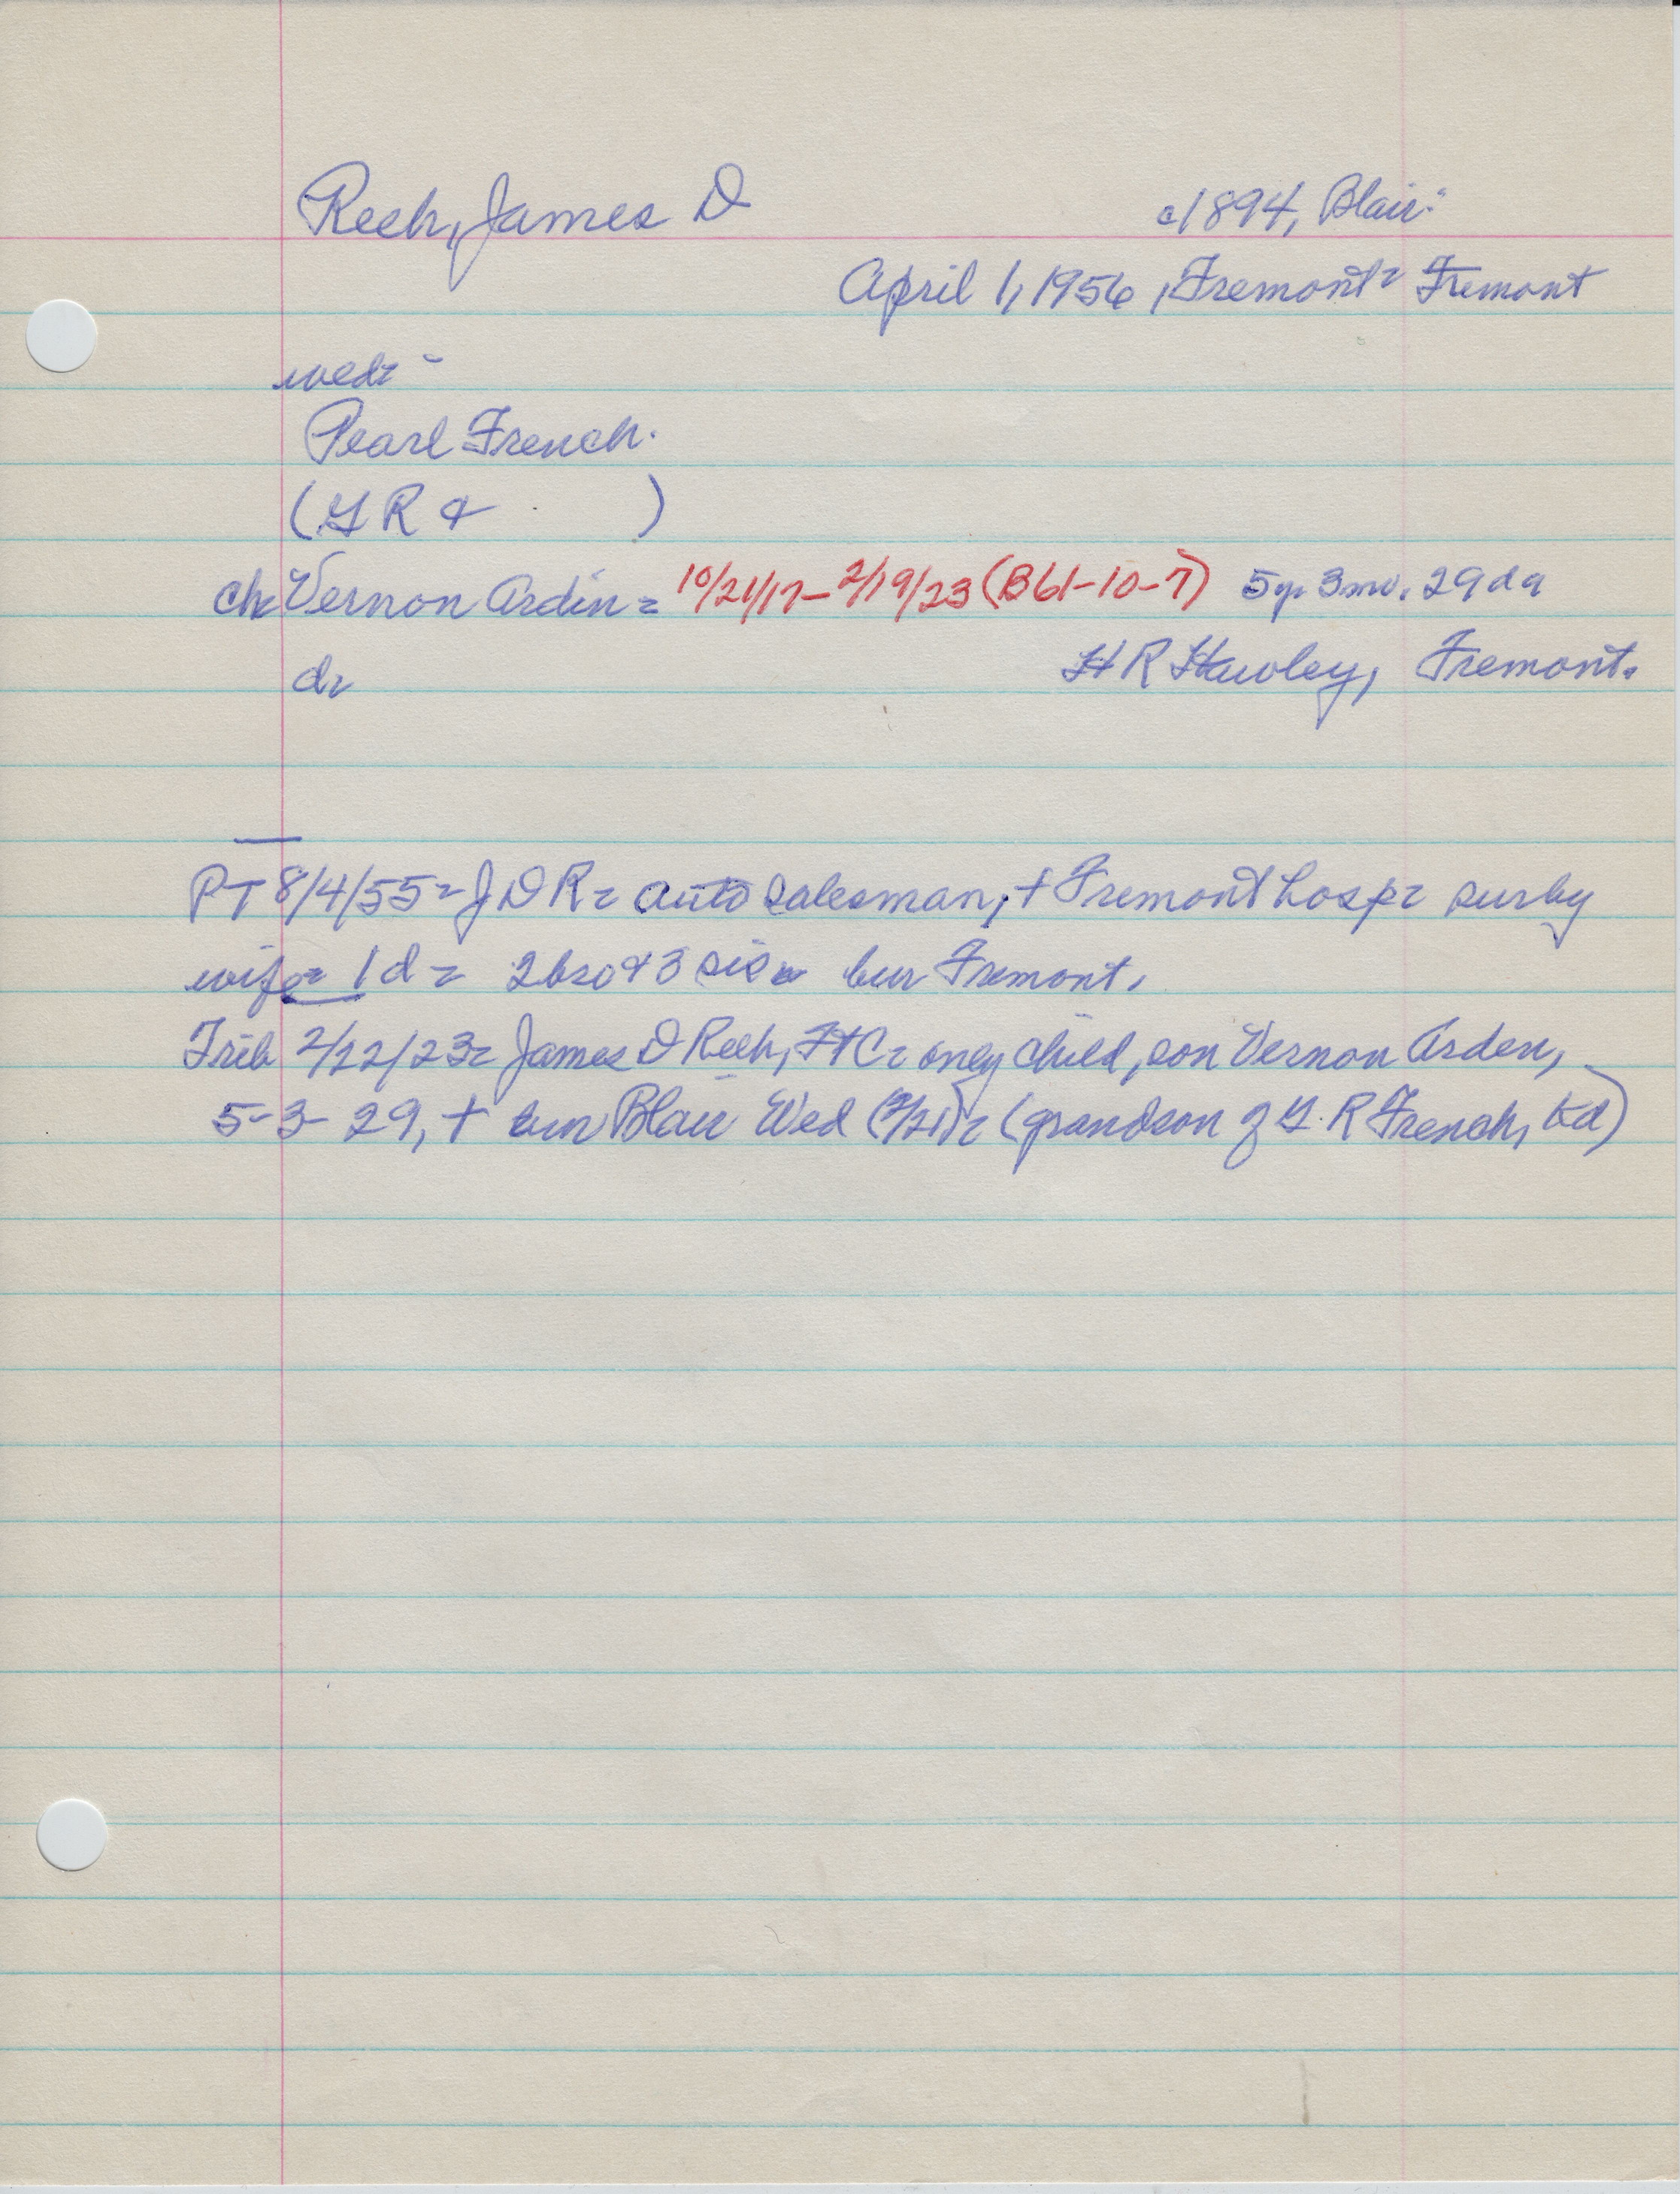 Reeh, James D c1894, Blair:
April 1, 1956, Fremont= Fremont
wed= -
Pearl French.
(G R & )
ch= Vernon Ardin = 10/21/17-2/19/23 (B61-10-7) 5y. 3mo. 29da
d= H R Hawley, Fremont.
PT 8/4/55= J D R= auto salesman, + Fremont hosp= surby
wife= 1d= 2bro & 3 sis= bur Fremont.
Trib 2/22/23= James D Reeh, FtC= only child, son Vernon Arden,
5-3-29, + bur Blair Wed (2/21)= (grandson of G. R French, Kd)